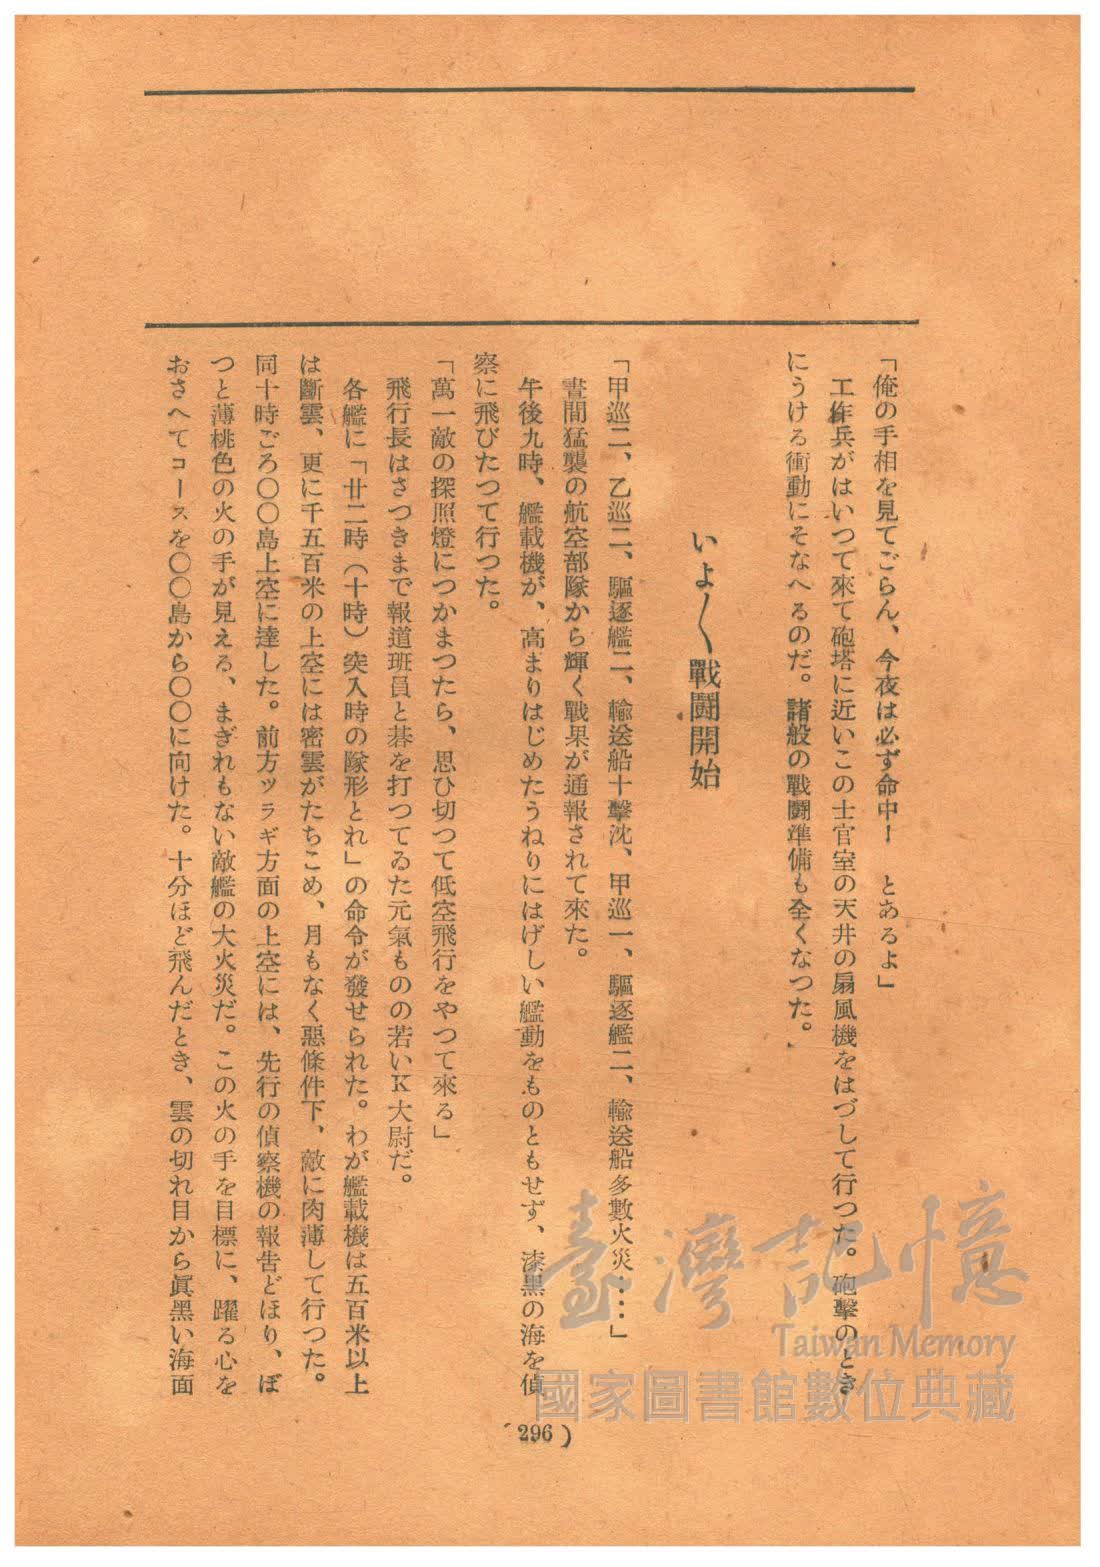 「俺の手相を見てごらん、今夜は必ず命中！　とあるよ」
工作兵がはいつて來て砲塔に近いこの士官室の天井の扇風機をはづして行つた。砲擊のとき
にうける衝動にそなへるのだ。諸般の戰鬪準備も全くなつた。
いよ〱戰鬪開始
「甲巡二、乙巡二、驅逐艦二、輸送船十擊沈、甲巡一、驅逐艦二、輸送船多數火災‥‥」
晝間猛襲の航空部隊から輝く戰果が通報されて來た。
午後九時、艦載機が、高まりはじめたうねりにはげしい艦動をものともせず、漆黑の海を偵
察に飛びたつて行つた。
「萬一敵の探照燈につかまつたら、思ひ切つて低空飛行をやつて來る」
飛行長はさつきまで報道班員と碁を打つてゐた元氣ものの若いK大尉だ。
各艦に「廿二時（十時）突入時の隊形とれ」の命令が發せられた。わが艦載機は五百米以上
は斷雲、更に千五百米の上空には密雲がたちこめ、月もなく惡條件下、敵に肉薄して行つた。
同十時ごろ〇〇島上空に達した。前方ツラギ方面の上空には、先行の偵察機の報告どほり、ぼ
つと薄桃色の火の手が見える、まぎれもない敵艦の大火災だ。この火の手を目標に、躍る心を
おさへてコースを〇〇島から〇〇に向けた。十分ほど飛んだとき、雲の切れ目から眞黑い海面
296 )
臺灣記憶
Taiwan Memory
國家圖書館數位典藏